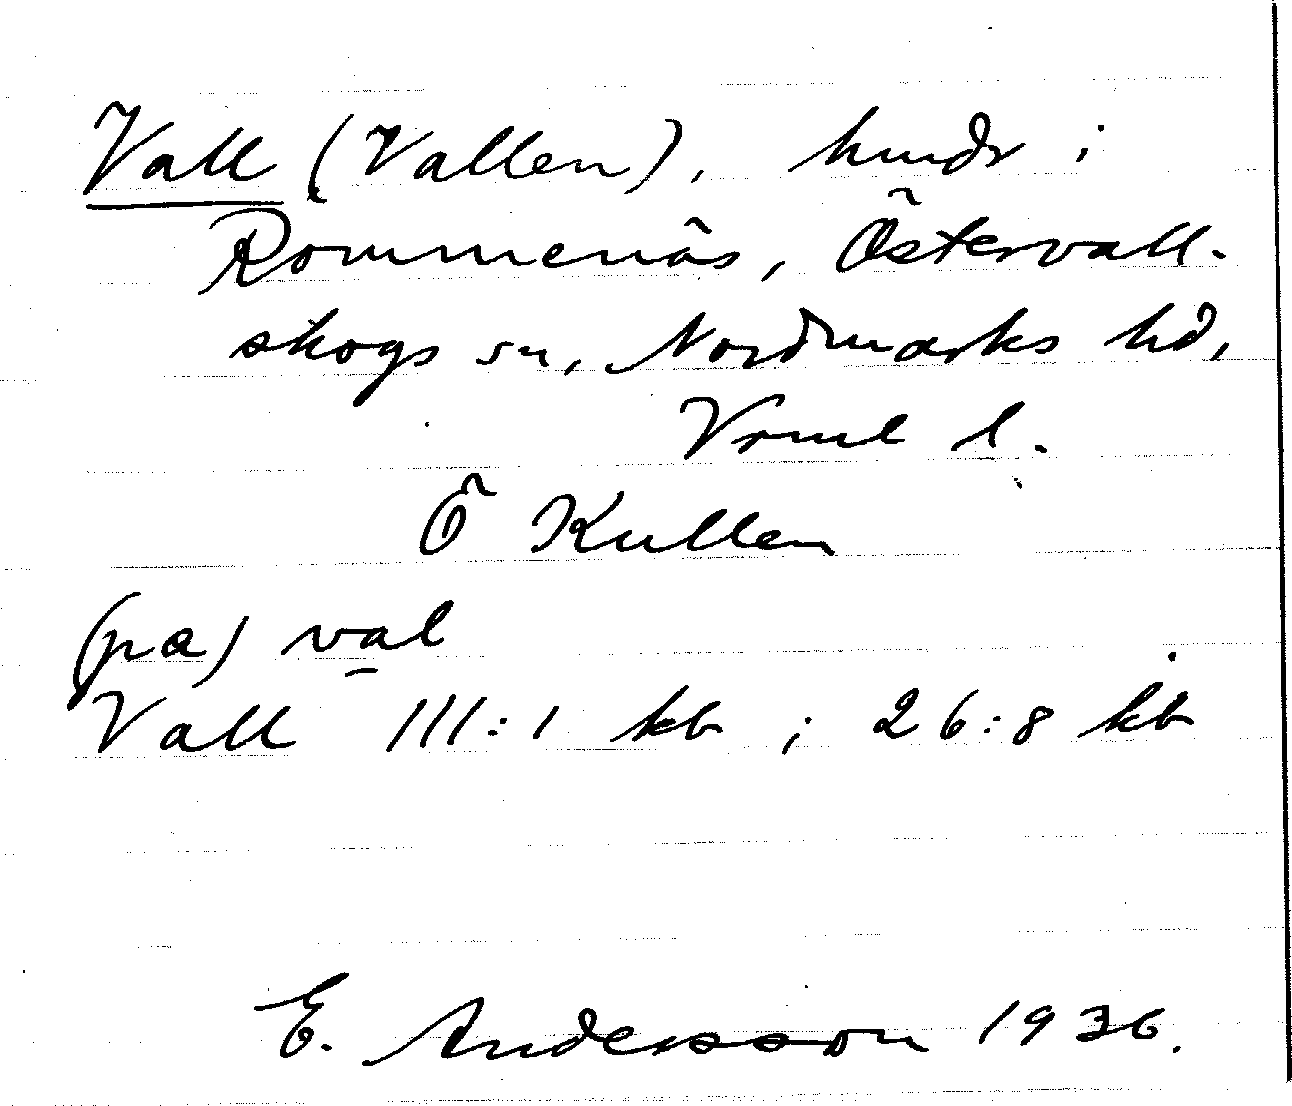 Vall (Vallen), hmdr i
Rommenäs, Östervall-
skogs sn, Nordmarks hd,
Vrml l.
Ö Kullen
(pa) val
Vall 111:1 kb ; 26:8 kb
E. Andersson 1936.